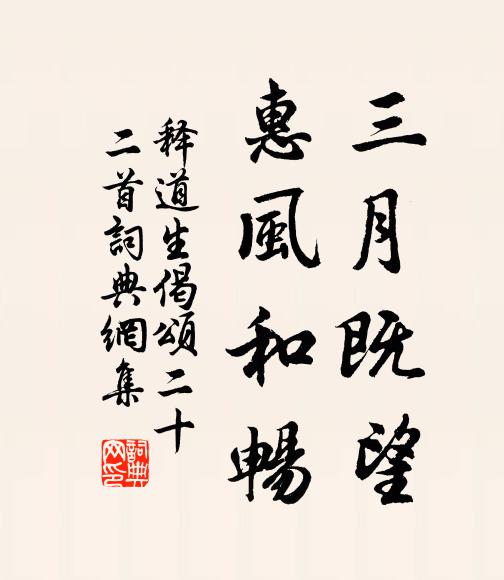 三月既望
惠風和暢
释道生偈頌二十
二首詞典網集
詞典网印